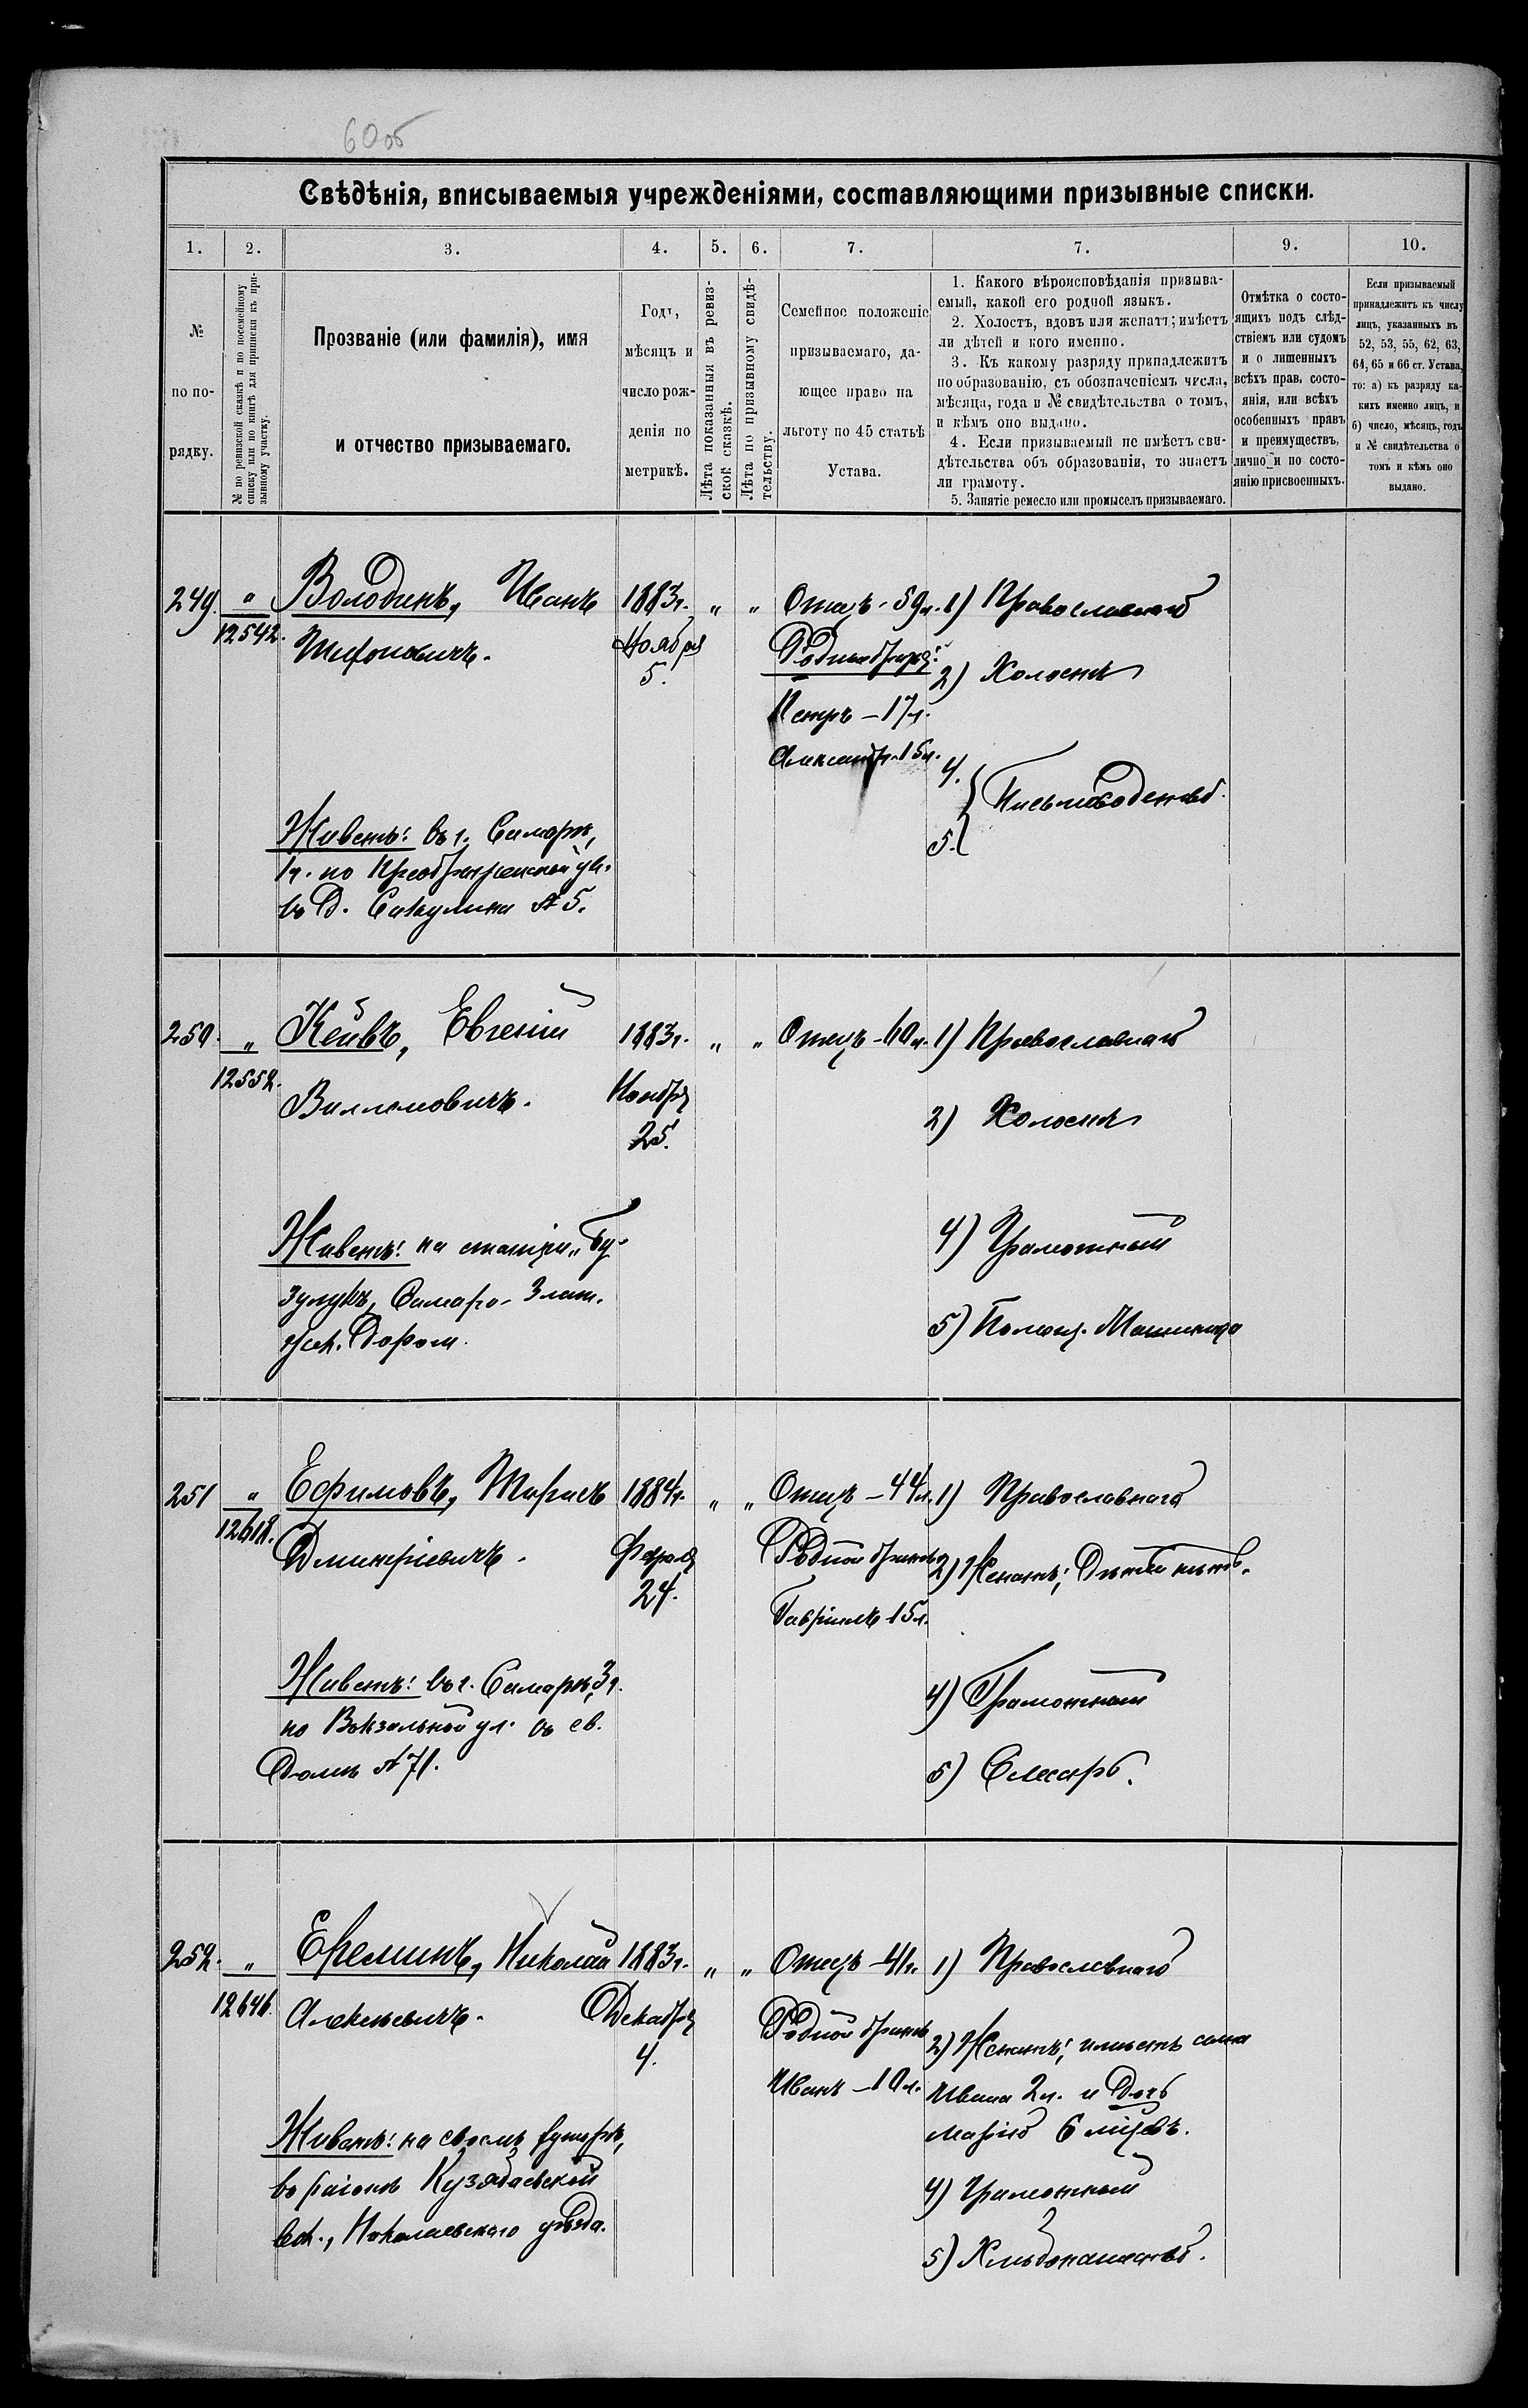 60об
Свѣдѣнія, вписываемыя учрежденіями, составляющими призывные списки.
1. 2. 3. 4. 5. 6. 7. 7. 9. 10.
№ по по-рядку.
№ по ревизской сказкѣ и по посемейному
списку или по книгѣ для приписки къ при-
зывному участку.
Прозваніе (или фамилія), имя
и отчество призываемаго.
Годъ,
мѣсяцъ и
число рож-
денія по
метрикѣ.
Лѣта показанныя въ ревиз-
ской сказкѣ.
Лѣта по призывному свидѣ-
тельству.
Семейное положеніе
призываемаго, да-
ющее право на
льготу по 45 статьѣ
Устава.
1. Какого вѣроисповѣданія призыва-
емый, какой его родной языкъ.
2. Холостъ, вдовъ или женатъ; имѣетъ
ли дѣтей и кого именно.
3. Къ какому разряду принадлежитъ
по образованію, съ обозначеніемъ числа,
мѣсяца, года и № свидѣтельства о томъ,
и кѣмъ оно выдано.
4. Если призываемый не имѣетъ сви-
дѣтельства объ образованіи, то знаетъ
ли грамоту.
5. Занятіе ремесло или промыселъ призываемаго.
Отмѣтка о состо-
ящихъ подъ слѣд-
ствіемъ или судомъ
и о лишенныхъ
всѣхъ прав, состо-
янія, или всѣхъ
особенныхъ правъ
и преимуществъ,
лично и по состо-
янію присвоенныхъ.
Если призываемый
принадлежитъ къ числу
лицъ, указанныхъ въ
52, 53, 55, 62, 63,
64, 65 и 66 ст. Устава,
то: а) къ разряду ка-
кихъ именно лицъ, и
б) число, мѣсяцъ, годъ
и № свидѣтельства о
томъ и кѣмъ оно
выдано.
249. " 12542.
Володинъ, Иванъ
Тифоновичъ.
1883г.
Ноября
5.
" "
Отецъ - 59л.
Родные братья:
Петръ - 17л.
Александръ - 15л.
1) Православнаго
2) Холостъ
4.
5. Письмоводство.
Живетъ: въ г. Самарѣ,
1ч. по Преображенской ул.
въ д. № 5.
250. " 12552.
Кейвъ, Евгеній
Вилломовичъ.
1883г.
Ноября
25.
" "
Отецъ - 60л.
1) Православнаго
2) Холостъ
4) Грамотный
5) Помощ. Машиниста
Живетъ: на станціи „Бу-
зулукъ, Самаро-Злат.
жел. дороги.
251 " 12618.
Ефимовъ, Тарасъ
Дмитріевичъ.
1884г.
Февраля
24.
" "
Отецъ - 44л.
Родной братъ
Гавріилъ 15л.
1) Православнаго
2) Женатъ; Дѣтей нѣтъ.
4) Грамотный
5) Слесарь.
Живетъ: въ г. Самарѣ, 3ч.
по Вокзальной ул. въ св.
домѣ № 71.
252. " 12646.
Ереминъ, Николай
Алексѣевичъ.
1883г.
Декабря
4.
" "
Отецъ - 41л.
Родной братъ
Иванъ - 10л.
1) Православнаго
2) Женатъ; имѣетъ сына
Ивана 2л. и дочь
Марію 6 мѣсяцевъ.
4) Грамотный
5) Хлѣбопашество.
Живетъ: на своемъ хуторѣ,
въ районѣ Кузябаевской
вол., Николаевскаго уѣзда.